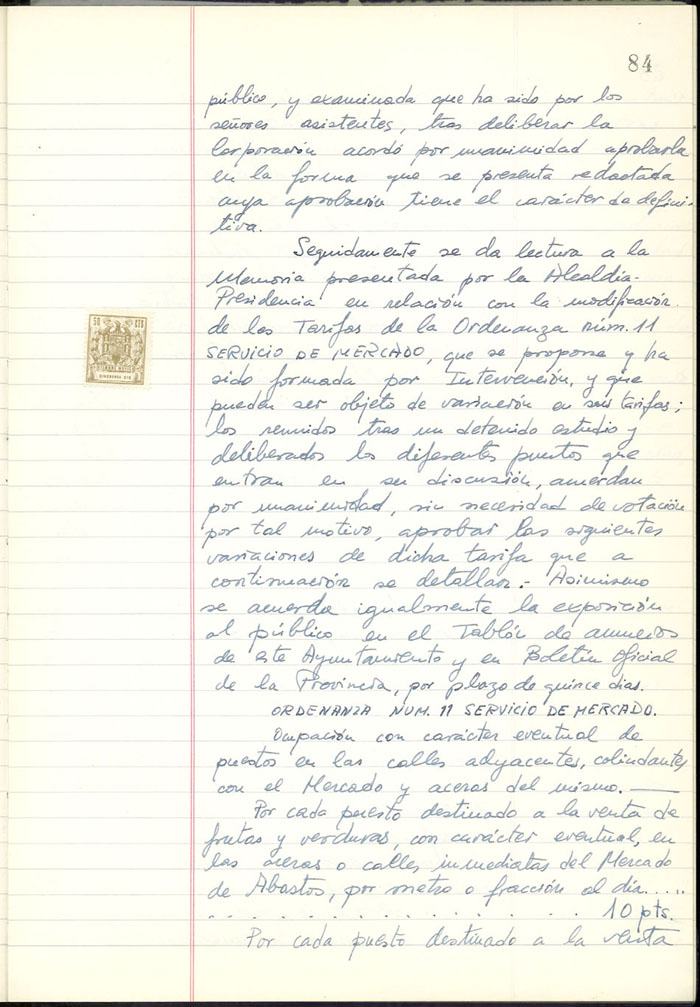 84
público, y examinada que ha sido por los
señores asistentes, tras deliberar la
Corporación acordó por unanimidad aprobarla
en la forma que se presenta redactada
cuya aprobación tiene el carácter de defini-
tiva.
Seguidamente se da lectura a la
Memoria presentada por la Alcaldía-
Presidencia en relación con la modificación
de las Tarifas de la Ordenanza núm. 11
SERVICIO DE MERCADO, que se propone y ha
sido formada por Intervención, y que
puedan ser objeto de variación en sus tarifas;
los reunidos tras un detenido estudio y
deliberados los diferentes puntos que
entran en su discusión, acuerdan
por unanimidad, sin necesidad de votación
por tal motivo, aprobar las siguientes
variaciones de dicha tarifa que a
continuación se detallan.- Asimismo
se acuerda igualmente la exposición
al público en el Tablón de anuncios
de este Ayuntamiento y en Boletín Oficial
de la Provincia, por plazo de quince días.
ORDENANZA NUM. 11 SERVICIO DE MERCADO.
Ocupación con carácter eventual de
puestos en las calles adyacentes, colindantes
con el Mercado y aceras del mismo.
Por cada puesto destinado a la venta de
frutas y verduras, con carácter eventual, en
las aceras o calles inmediatas del Mercado
de Abastos, por metro o fracción al día.....
. . . . . . . . . . . . . . . . . 10 pts.
Por cada puesto destinado a la venta
50 CTS